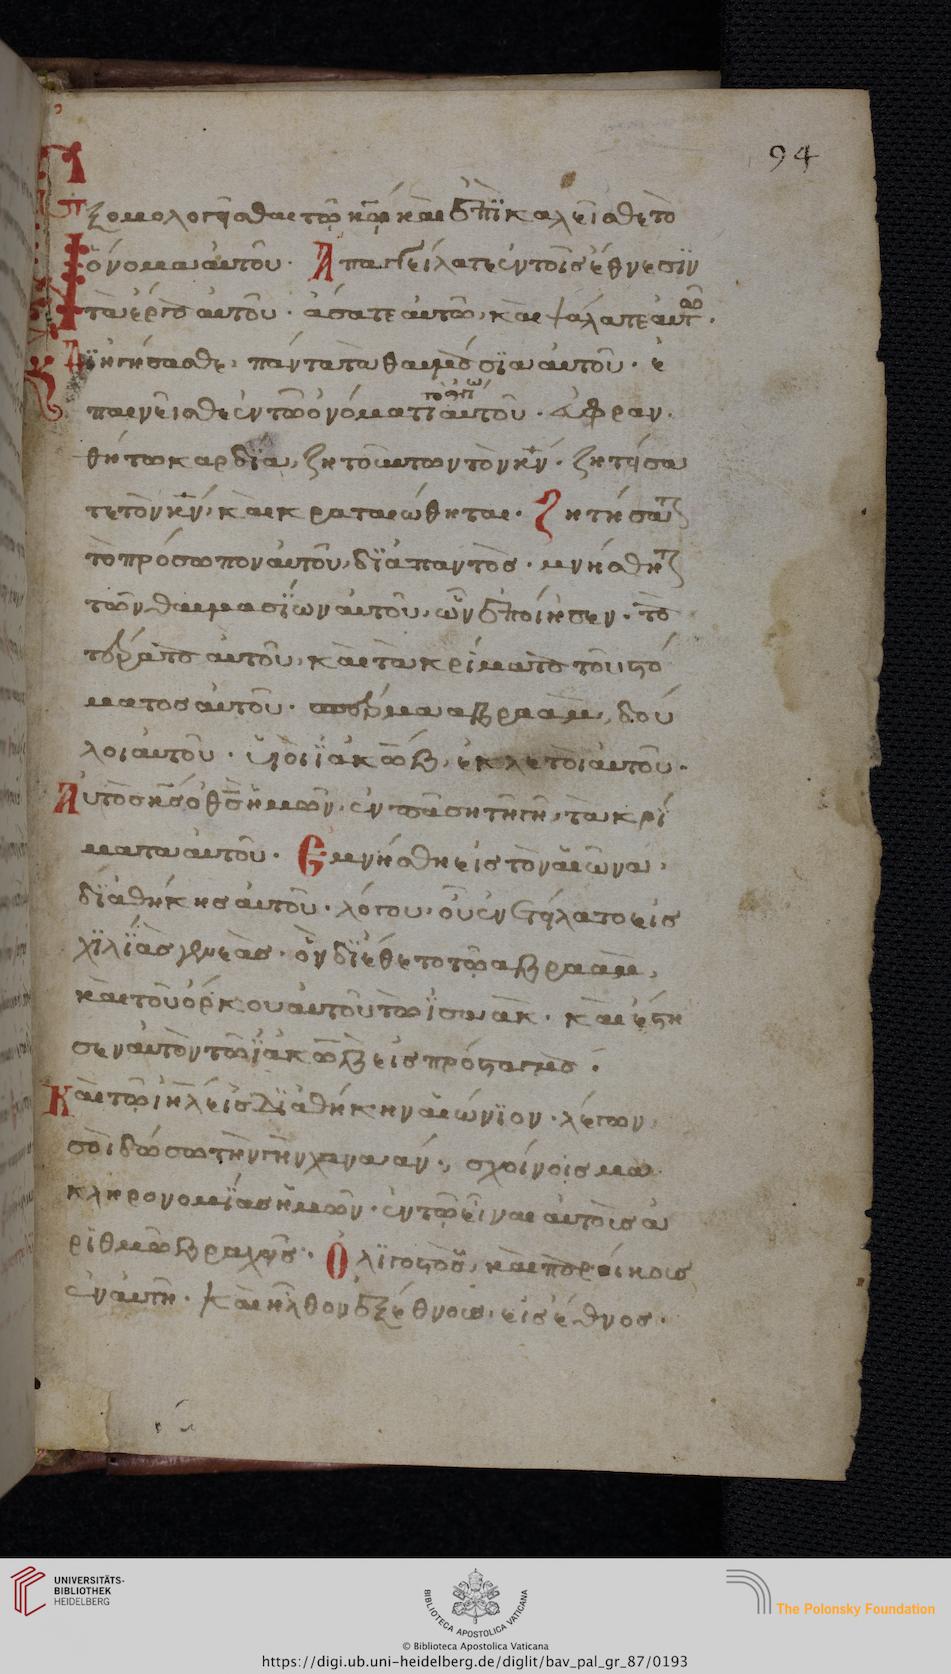 94
ξομολογεῖσθαι τῷ κῷ καὶ ἐπικαλεῖσθε τὸ
ὄνομα αὐτοῦ· Ἀπαγγείλατε ἐν τοῖς ἔθνεσιν
τὰ ἔργα αὐτοῦ· ἄσατε αὐτῶ, καὶ ψάλατε αὐτῶ·
Διηγήσασθε, πάντα τὰ θαυμάσια αὐτοῦ· ἐ
παινεῖσθε ἐν τῶ ὀνόματι τῶ ἁγίω αὐτοῦ· εὐφραν
θήτω καρδία, ζητούντων τὸν κν· ζητήσα
τε τὸν κν, καὶ κραταιώθηται· Ζητήσατε
τὸ πρόσωπον αὐτοῦ, διὰ παντὸς· μνήσθητε
τῶν θαυμασίων αὐτοῦ, ὧν ἐποίησεν· τὰ
τέρατα αὐτοῦ, καὶ τὰ κρίματα τοῦ στό
ματος αὐτοῦ· σπέρμα αβρααμ, δού
λοι αὐτοῦ· υἱοὶ ἰακὼβ, ἐκλετοὶ αὐτοῦ·
Αὐτὸς κς ὁ θς ἡμῶν, ἐν πάση τῆ γῆ, τὰ κρί
ματα αὐτοῦ· Ἐμνήσθη εἰς τὸν αἰῶνα,
διαθήκης αὐτοῦ· λόγου, οὗ ἐνετήλατο εἰς
χιλίας γενεὰς· ὃν διέθετο τῶ αβρααμ,
καὶ τοῦ ὅρκου αὐτοῦ τῶ ἰσαάκ· καὶ ἔστη
σεν αὐτὸν τῶ ἰακὼβ εἰς πρόσταγμα·
Καὶ τῶ ιηλ εἰς διαθήκην αἰώνιον· λέγων,
σοὶ δώσω τὴν γῆν χανααν, σχοίνοισμα
κληρονομίας ἡμῶν· ἐν τῶ εἶναι αὐτοὺς ἀ
ριθμῶ βραχεῖς· Ὀλιγοστοὺς, καὶ παροίκους
ἐν αὐτῆ· Καὶ ἦλθον ἐξ ἔθνους, εἰς ἔθνος·
UNIVERSITÄTS-
BIBLIOTHEK
HEIDELBERG
BIBLIOTECA APOSTOLICA VATICANA
The Polonsky Foundation
© Biblioteca Apostolica Vaticana
https://digi.ub.uni-heidelberg.de/diglit/bav_pal_gr_87/0193